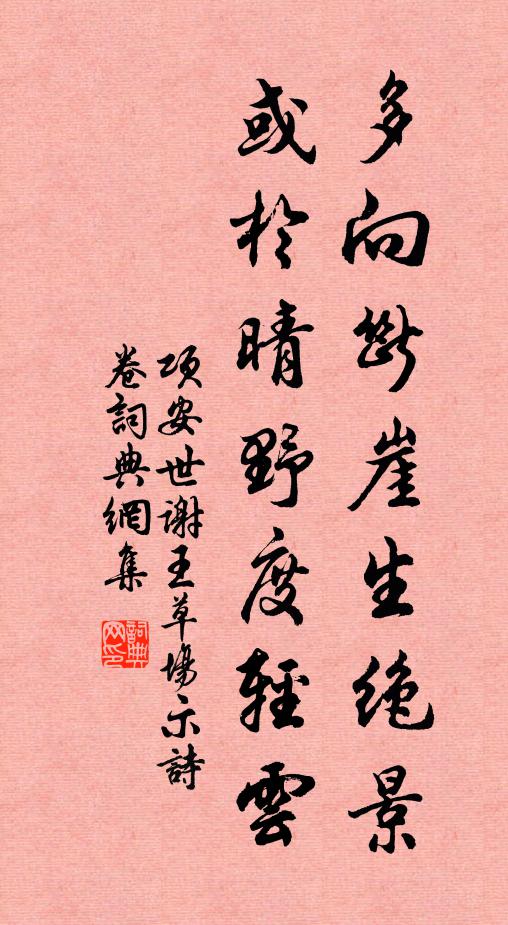 多向断崖生絶景
或於晴野度輕雲
項安世謝王草場示詩
卷詞典網集
詞典
网印